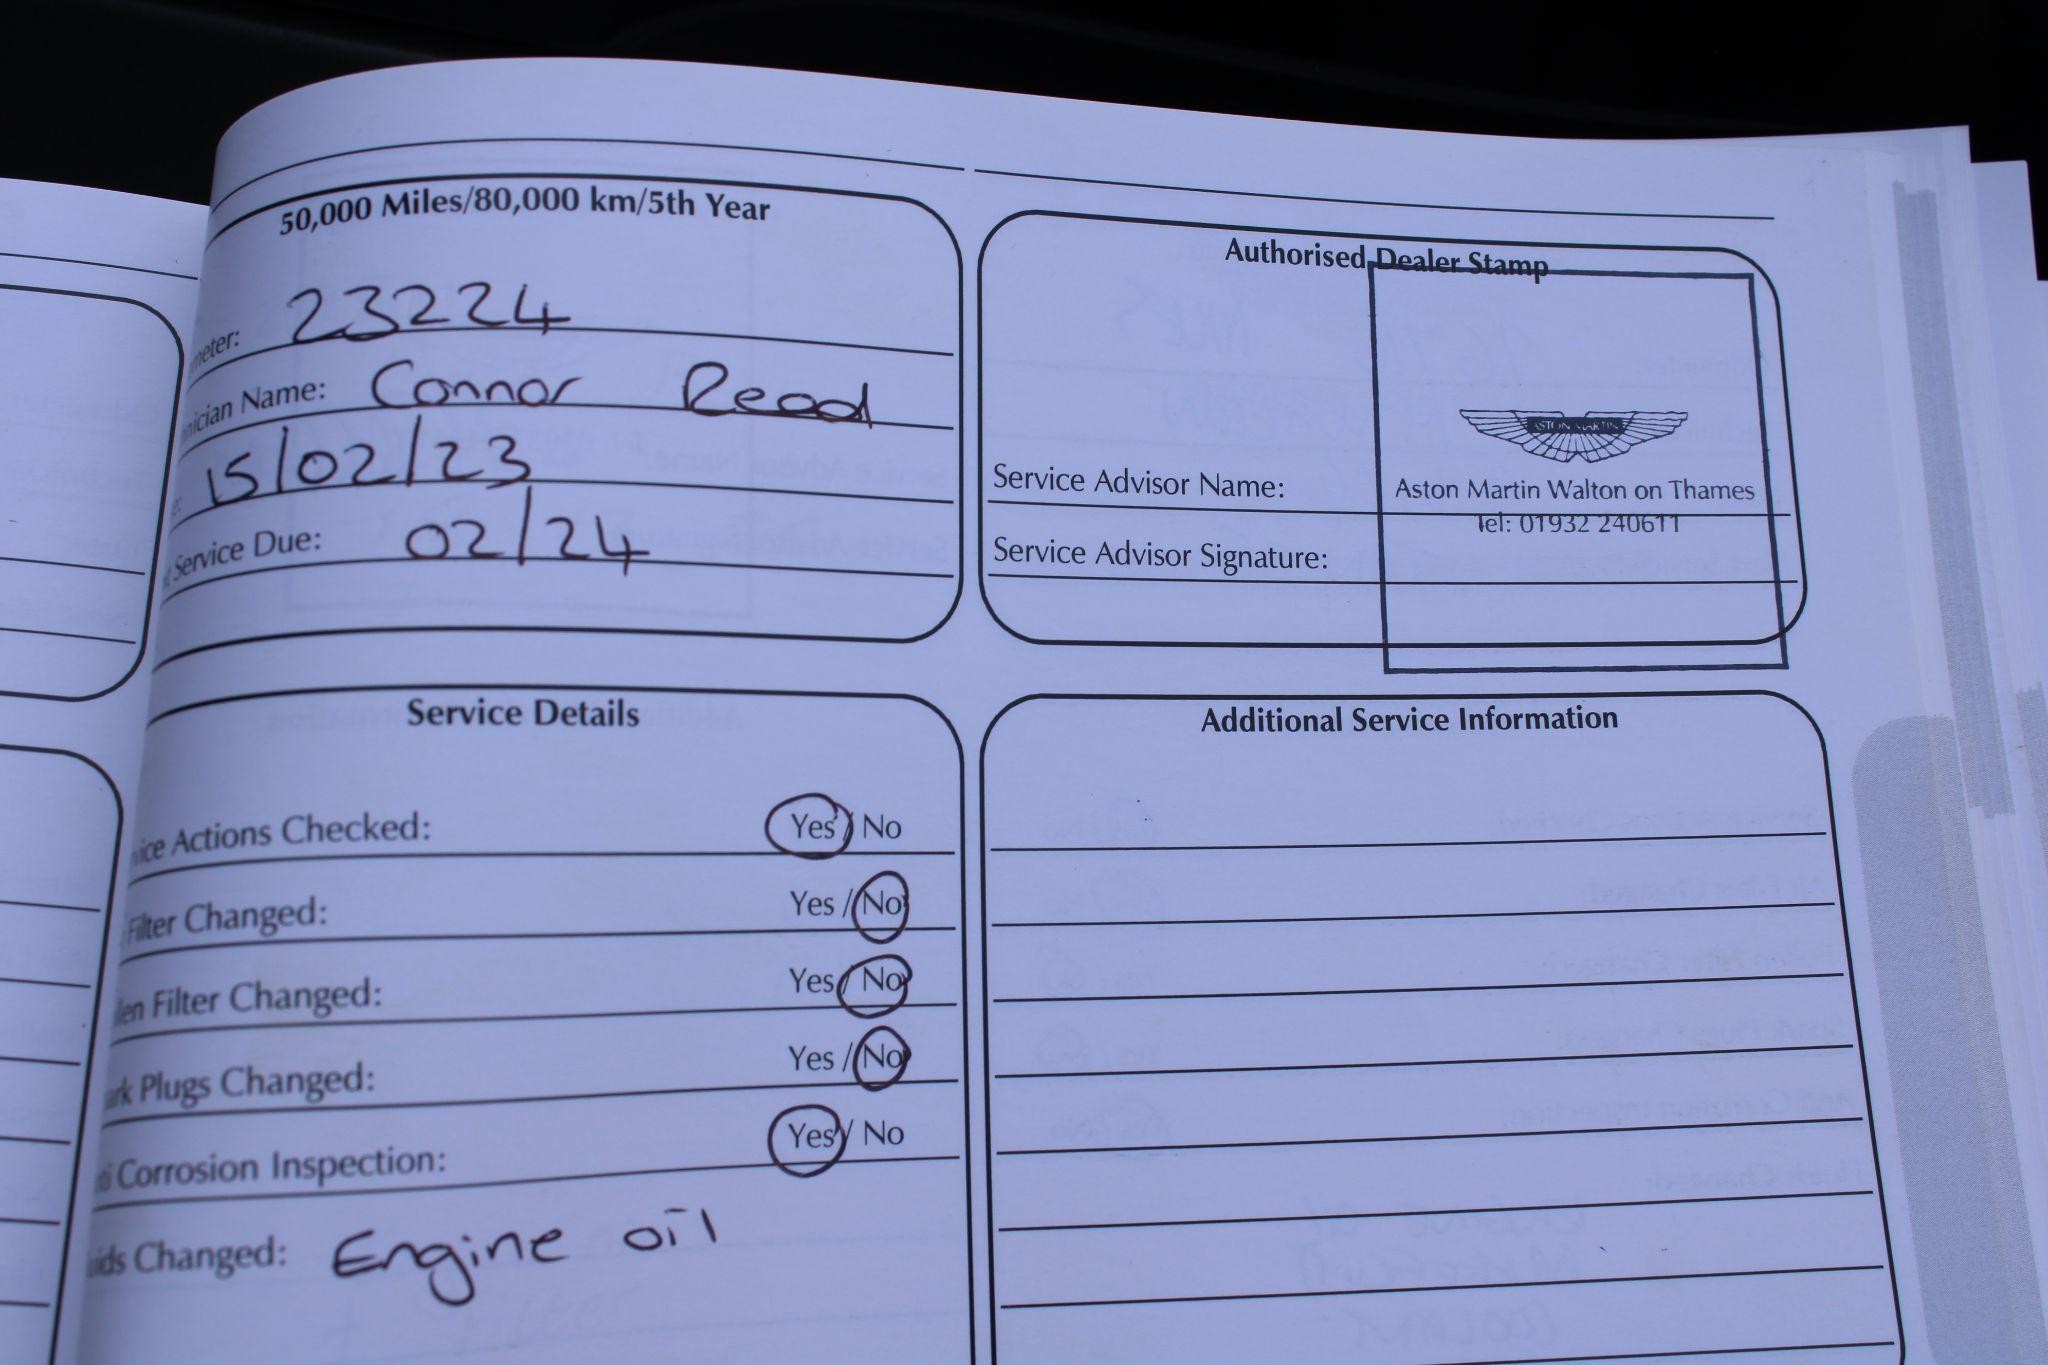 50,000 Miles/80,000 km/5th Year
meter: 23224
nician Name: Connor Read
e: 15/02/23
t Service Due: 02/24
Authorised Dealer Stamp
ASTON MARTIN
Aston Martin Walton on Thames
Tel: 01932 240611
Service Advisor Name:
Service Advisor Signature:
Service Details
vice Actions Checked: Yes / No
Filter Changed: Yes / No
llen Filter Changed: Yes / No
ark Plugs Changed: Yes / No
ti Corrosion Inspection: Yes / No
uids Changed: Engine oil
Additional Service Information